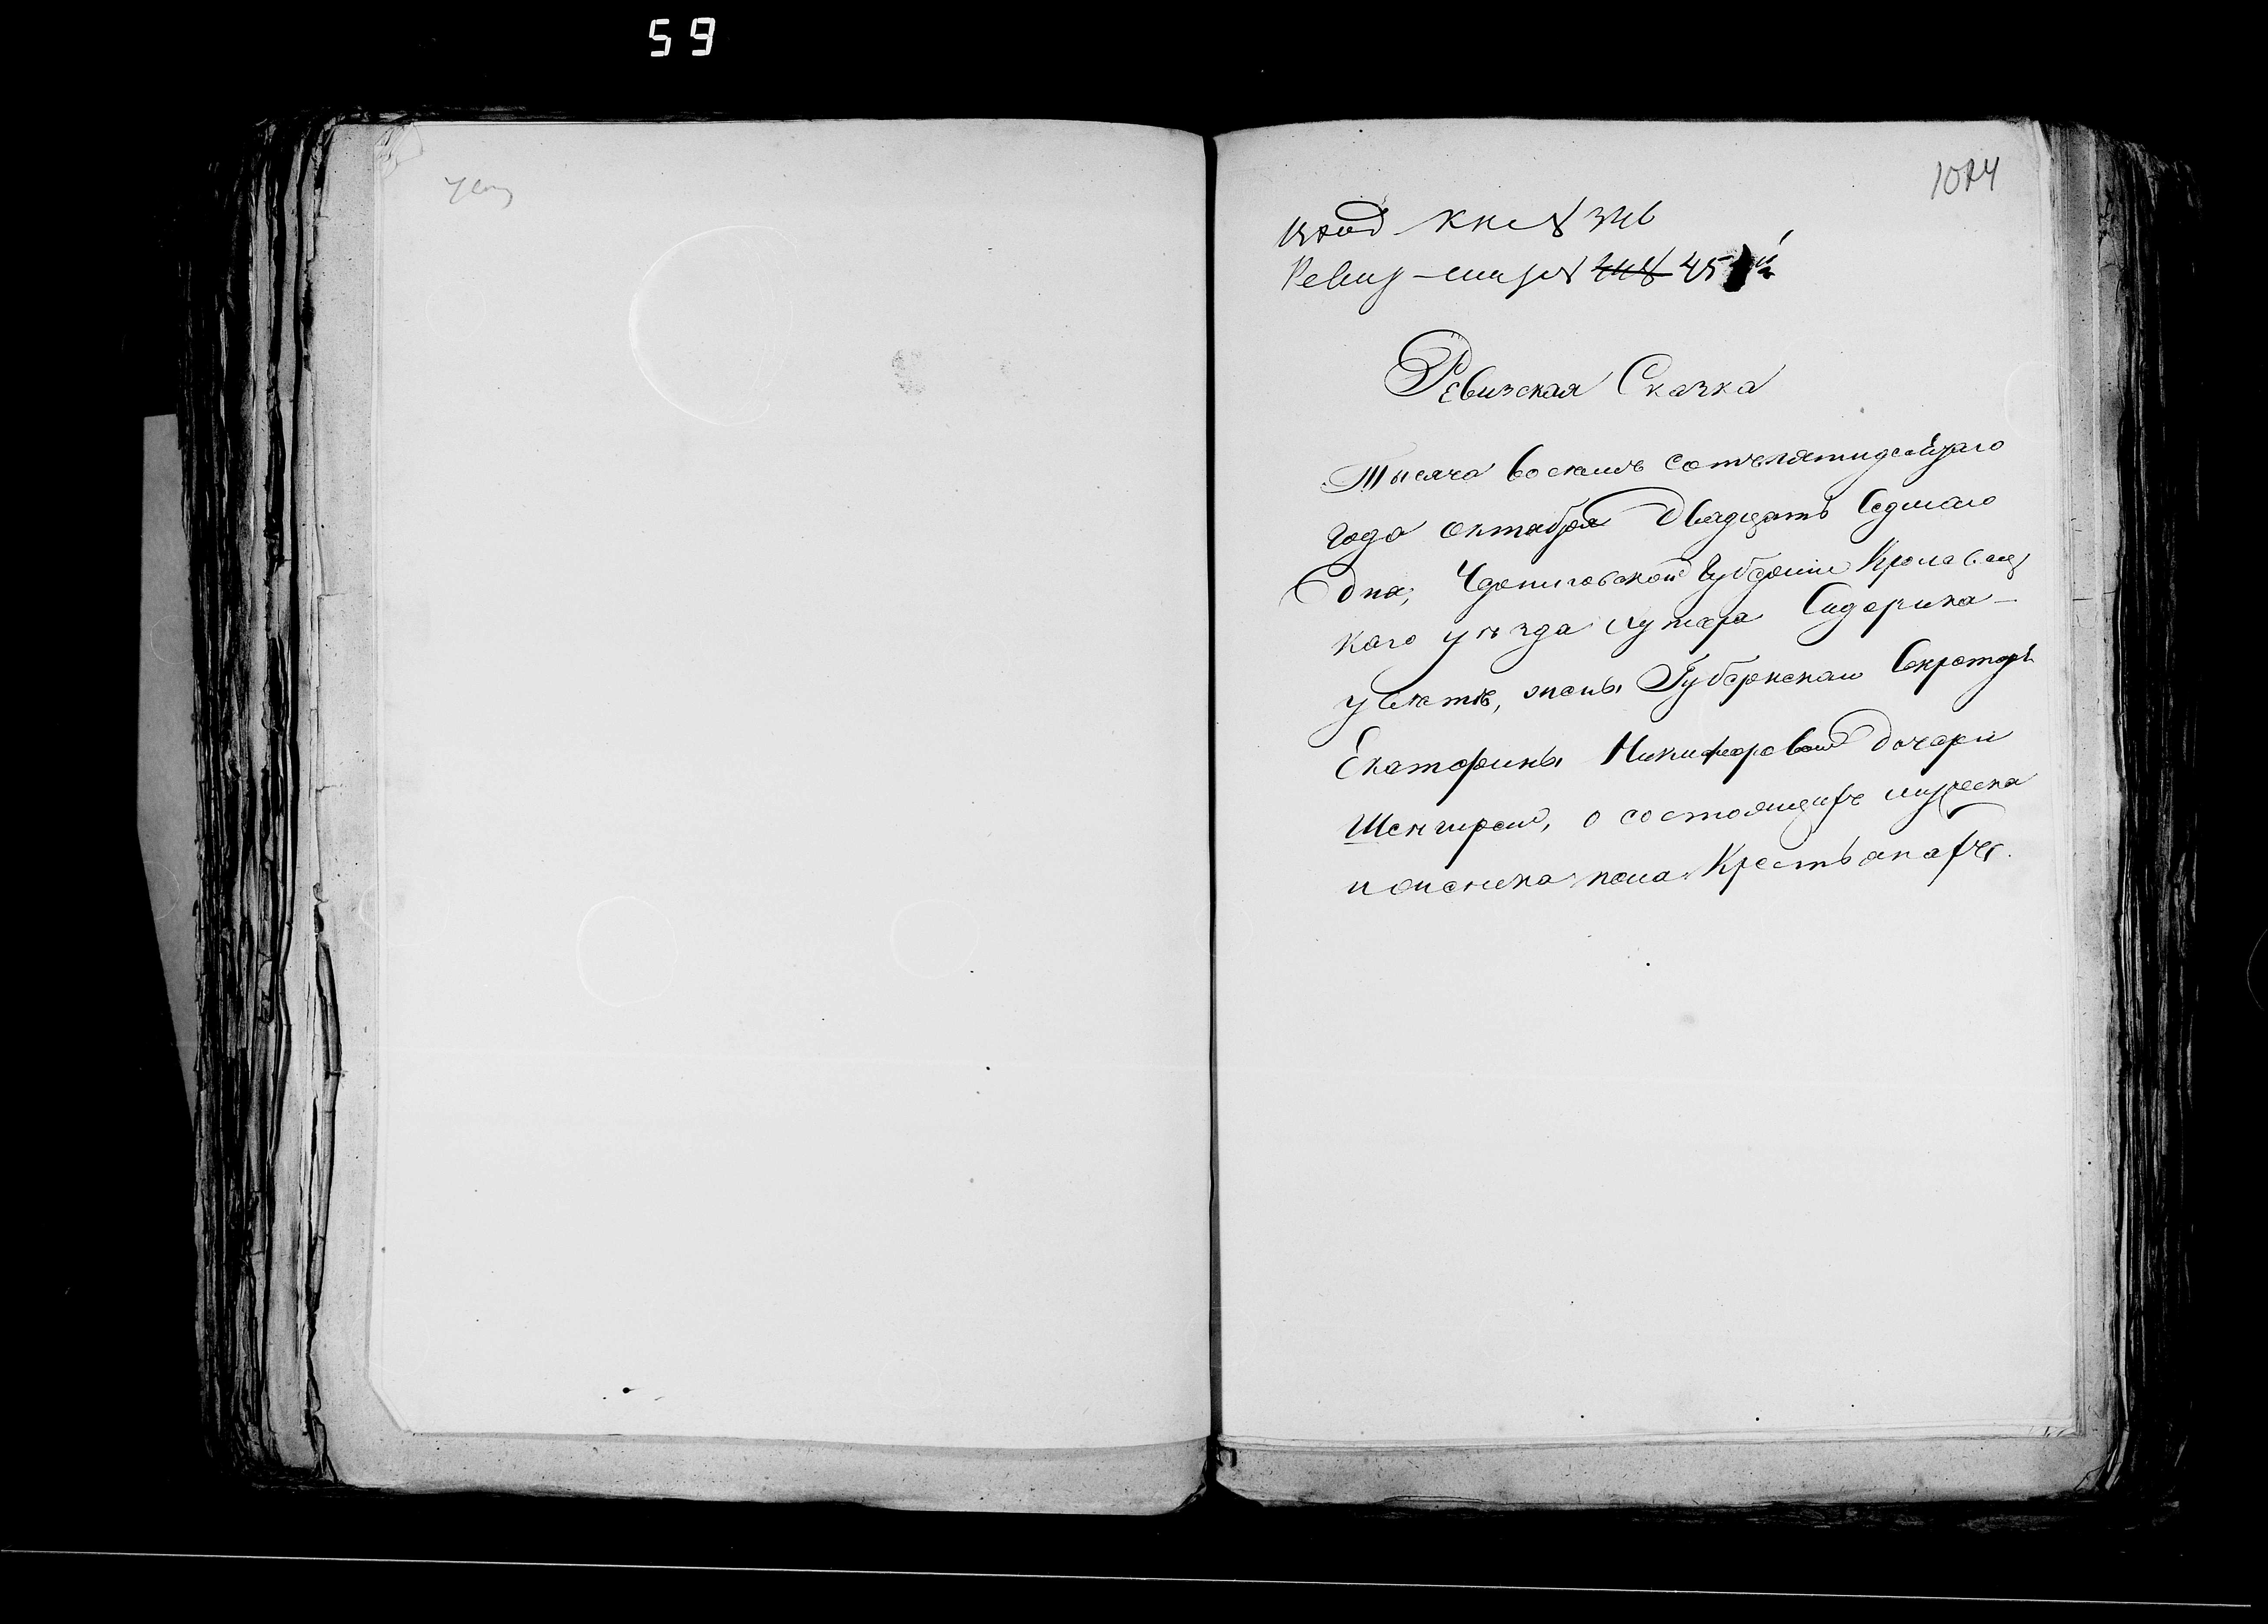 59
1074
вход кн № 346
Ревиз № 45
Ревизская Сказка
Тысяча восемь сотъ пятидесятаго
года октября двадцать седмаго
дня, Черниговской Губерніи Кролевец
каго уѣзда хутора Сидорика
жены Губернскаго Секретаря
Екатерины Никифоровой дочери
Шенгирей, о состоящихъ мужеска
и женска пола Крестьянахъ.